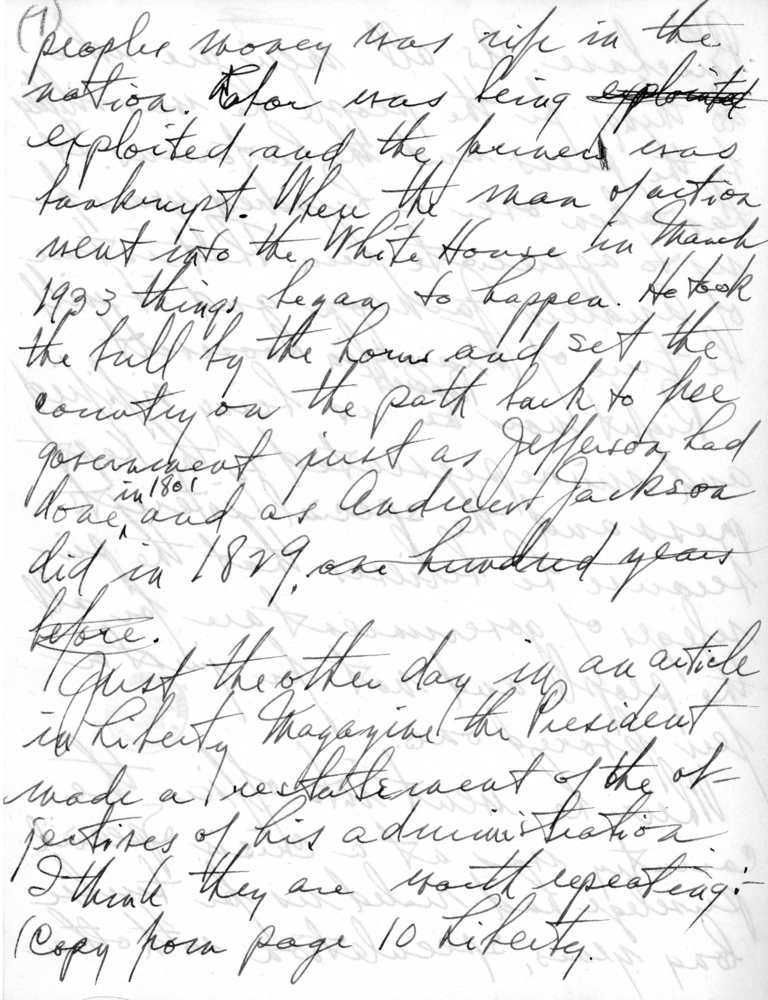 (7)
peoples money was rife in the
nation. Labor was being exploited
exploited and the farmer was
bankrupt. When the man of action
went into the White House in March
1933 things began to happen. He took
the bull by the horns and set the
country on the path back to free
government just as Jefferson had
done in 1801 and as Andrew Jackson
did in 1829. one hundred years
before.
Just the other day in an article
in Liberty Magazine the President
made a restatement of the ob-
jectives of his administration
I think they are worth repeating:-
(Copy from page 10 Liberty.